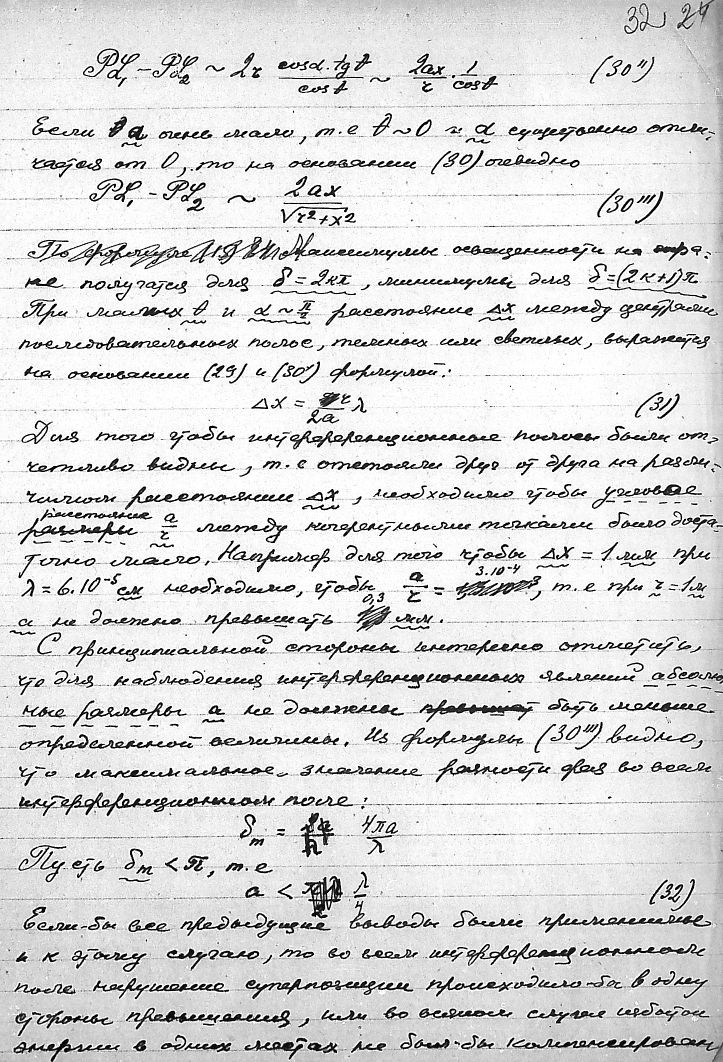 32. 24
PL₁ - PL₂ ~ 2r cosα·tgθ / cosθ ~ 2ax/r · 1/cosθ (30'')
Если a очень мало, т.е θ~0 и α существенно отли-
чается от 0, то на основании (30) очевидно
PL₁ - PL₂ ~ 2ax / √(r²+x²) (30''')
Максимумы освещенности на экра-
не получатся для δ = 2kπ, минимумы для δ=(2k+1)π
При малых θ и α ~ π/2 расстояние Δx между центрами
последовательных полос, темных или светлых, выражается
на основании (29) и (30') формулой:
Δx = r/2a λ (31)
Для того чтобы интерференционные полосы были от-
четливо видны, т.е отстояли друг от друга на разли-
чимом расстоянии Δx, необходимо чтобы угловое
расстояние a/r между когерентными точками было доста-
точно мало. Например для того чтобы Δx = 1 мм при
λ = 6.10⁻⁵ см необходимо, чтобы a/r = 3.10⁻⁴, т.е при r = 1 м
a не должно превышать 0,3 мм.
С принципиальной стороны интересно отметить,
что для наблюдения интерференционных явлений абсолют-
ные размеры a не должны быть меньше
определенной величины. Из формулы (30''') видно,
что максимальное значение разности фаз во всем
интерференционном поле:
δm = 4πa/λ
Пусть δm < π, т.е
a < λ/4 (32)
Если-бы все предыдущие выводы были применимы
и к этому случаю, то во всем интерференционном
поле нарушение суперпозиции происходило-бы в одну
стороны превышения, или во всяком случае избыток
энергии в одних местах не был-бы компенсирован